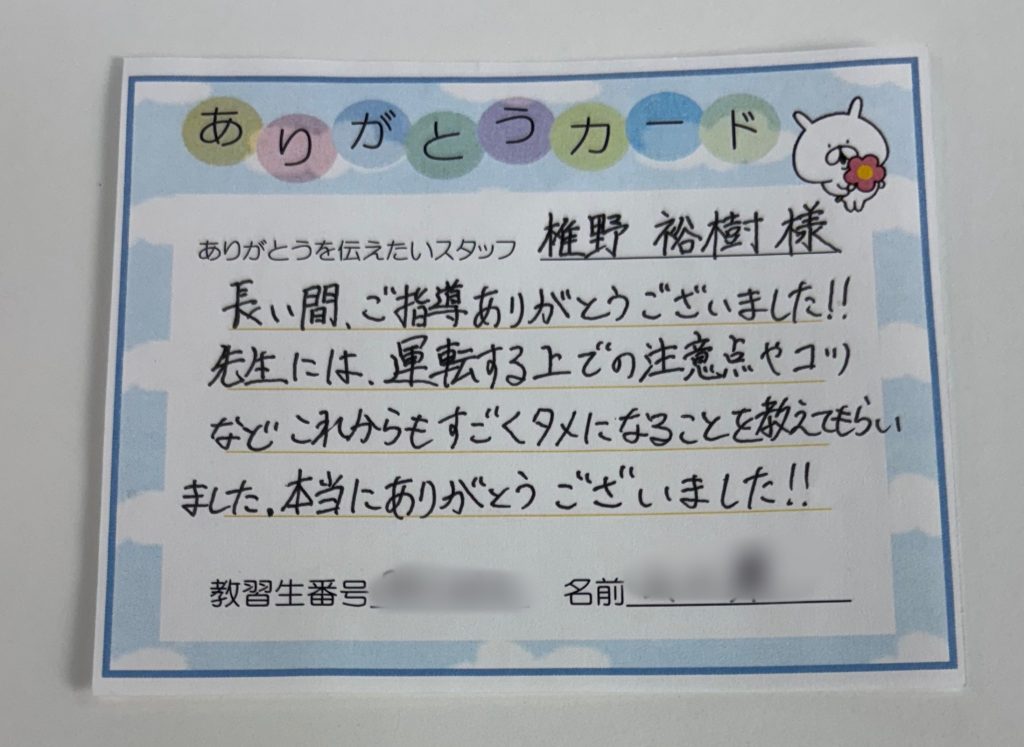 ありがとうカード
ありがとうを伝えたいスタッフ 椎野 裕樹 様
長い間、ご指導ありがとうございました!!
先生には、運転する上での注意点やコツ
などこれからもすごくタメになることを教えてもらい
ました。本当にありがとうございました!!
教習生番号 名前